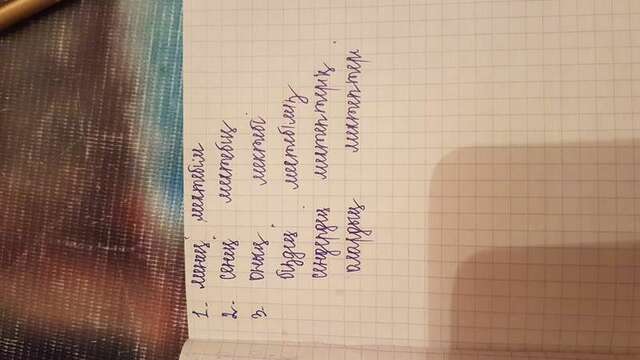 1. менің мектебім
2. сенің мектебің
3. оның мектебі
біздің мектебіміз
сендердің мектептерің
олардың мектептері